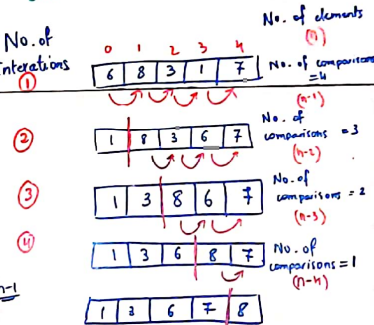 No. of
interations
①
0 1 2 3 4
6 8 3 1 7
No. of elements
(n)
No. of comparisons
=4
(n-1)
②
1 8 3 6 7
No. of
comparisons = 3
(n-2)
③
1 3 8 6 7
No. of
comparisons = 2
(n-3)
④
1 3 6 8 7
No. of
comparisons = 1
(n-4)
n-1
1 3 6 7 8